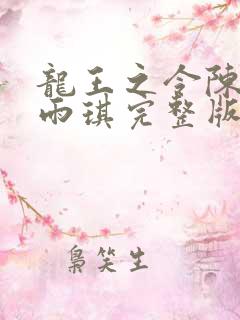 龍王之令陳
雨琪完整版
梟笑生